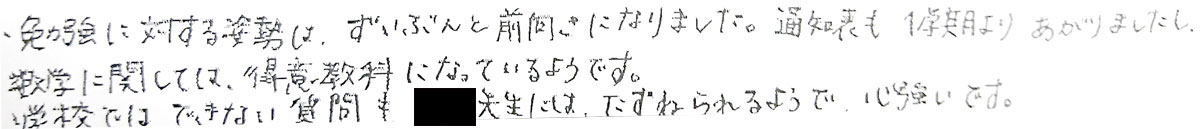 、勉強に対する姿勢は、ずいぶんと前向きになりました。通知表も1学期よりあがりましたし、
数学に関しては、得意教科になっているようです。
学校ではできない質問も 先生には、たずねられるようで、心強いです。